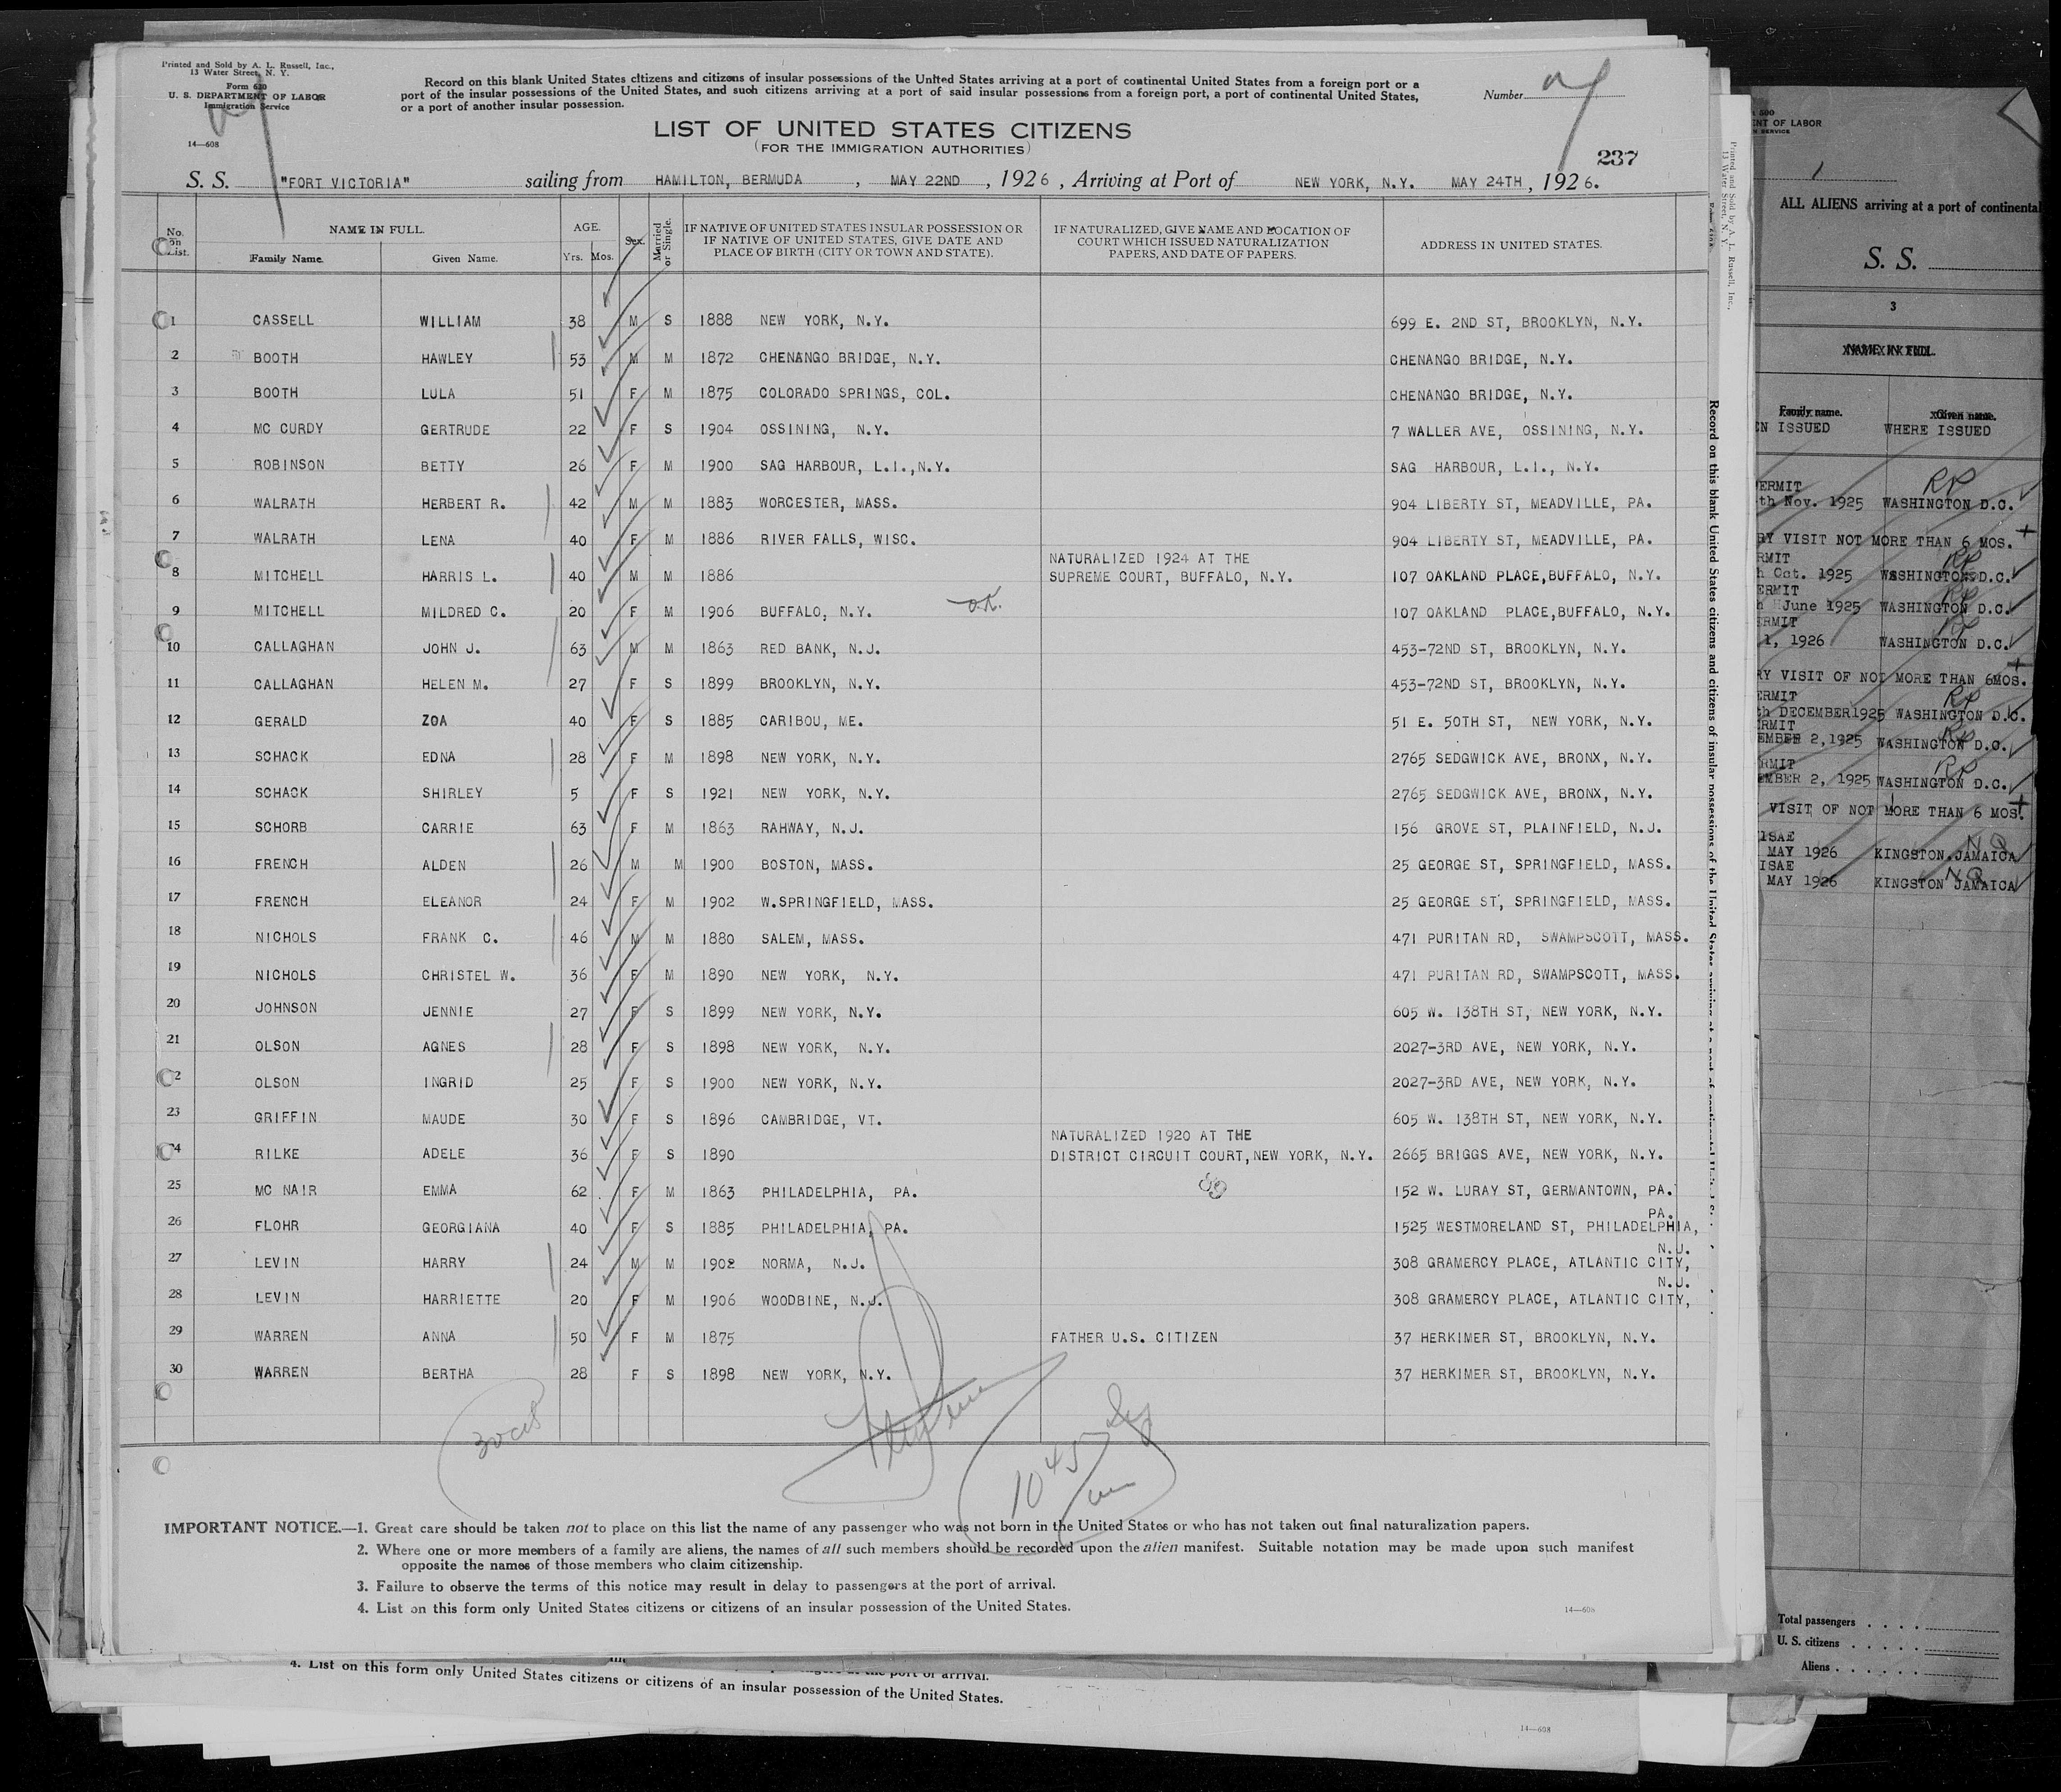 Printed and Sold by A. L. Russell, Inc.,
13 Water Street, N. Y.
Form 630
U. S. DEPARTMENT OF LABOR
Immigration Service
14—608
Record on this blank United States citizens and citizens of insular possessions of the United States arriving at a port of continental United States from a foreign port or a
port of the insular possessions of the United States, and such citizens arriving at a port of said insular possessions from a foreign port, a port of continental United States,
or a port of another insular possession.
Number
LIST OF UNITED STATES CITIZENS
(FOR THE IMMIGRATION AUTHORITIES)
237
S. S. "FORT VICTORIA" sailing from HAMILTON, BERMUDA, MAY 22ND, 1926, Arriving at Port of NEW YORK, N.Y. MAY 24TH, 1926.
No. on List. NAME IN FULL. Family Name. Given Name. AGE. Yrs. Mos. Sex. Married or Single. IF NATIVE OF UNITED STATES INSULAR POSSESSION OR IF NATIVE OF UNITED STATES, GIVE DATE AND PLACE OF BIRTH (CITY OR TOWN AND STATE). IF NATURALIZED, GIVE NAME AND LOCATION OF COURT WHICH ISSUED NATURALIZATION PAPERS, AND DATE OF PAPERS. ADDRESS IN UNITED STATES.
1 CASSELL WILLIAM 38 M S 1888 NEW YORK, N.Y. 699 E. 2ND ST, BROOKLYN, N.Y.
2 BOOTH HAWLEY 53 M M 1872 CHENANGO BRIDGE, N.Y. CHENANGO BRIDGE, N.Y.
3 BOOTH LULA 51 F M 1875 COLORADO SPRINGS, COL. CHENANGO BRIDGE, N.Y.
4 MC CURDY GERTRUDE 22 F S 1904 OSSINING, N.Y. 7 WALLER AVE, OSSINING, N.Y.
5 ROBINSON BETTY 26 F M 1900 SAG HARBOUR, L.I.,N.Y. SAG HARBOUR, L.I., N.Y.
6 WALRATH HERBERT R. 42 M M 1883 WORCESTER, MASS. 904 LIBERTY ST, MEADVILLE, PA.
7 WALRATH LENA 40 F M 1886 RIVER FALLS, WISC. 904 LIBERTY ST, MEADVILLE, PA.
8 MITCHELL HARRIS L. 40 M M 1886 NATURALIZED 1924 AT THE SUPREME COURT, BUFFALO, N.Y. 107 OAKLAND PLACE,BUFFALO, N.Y.
9 MITCHELL MILDRED C. 20 F M 1906 BUFFALO, N.Y. O.K. 107 OAKLAND PLACE,BUFFALO, N.Y.
10 CALLAGHAN JOHN J. 63 M M 1863 RED BANK, N.J. 453-72ND ST, BROOKLYN, N.Y.
11 CALLAGHAN HELEN M. 27 F S 1899 BROOKLYN, N.Y. 453-72ND ST, BROOKLYN, N.Y.
12 GERALD ZOA 40 F S 1885 CARIBOU, ME. 51 E. 50TH ST, NEW YORK, N.Y.
13 SCHACK EDNA 28 F M 1898 NEW YORK, N.Y. 2765 SEDGWICK AVE, BRONX, N.Y.
14 SCHACK SHIRLEY 5 F S 1921 NEW YORK, N.Y. 2765 SEDGWICK AVE, BRONX, N.Y.
15 SCHORB CARRIE 63 F M 1863 RAHWAY, N.J. 156 GROVE ST, PLAINFIELD, N.J.
16 FRENCH ALDEN 26 M M 1900 BOSTON, MASS. 25 GEORGE ST, SPRINGFIELD, MASS.
17 FRENCH ELEANOR 24 F M 1902 W.SPRINGFIELD, MASS. 25 GEORGE ST, SPRINGFIELD, MASS.
18 NICHOLS FRANK C. 46 M M 1880 SALEM, MASS. 471 PURITAN RD, SWAMPSCOTT, MASS.
19 NICHOLS CHRISTEL W. 36 F M 1890 NEW YORK, N.Y. 471 PURITAN RD, SWAMPSCOTT, MASS.
20 JOHNSON JENNIE 27 F S 1899 NEW YORK, N.Y. 605 W. 138TH ST, NEW YORK, N.Y.
21 OLSON AGNES 28 F S 1898 NEW YORK, N.Y. 2027-3RD AVE, NEW YORK, N.Y.
2 OLSON INGRID 25 F S 1900 NEW YORK, N.Y. 2027-3RD AVE, NEW YORK, N.Y.
23 GRIFFIN MAUDE 30 F S 1896 CAMBRIDGE, VT. 605 W. 138TH ST, NEW YORK, N.Y.
4 RILKE ADELE 36 F S 1890 NATURALIZED 1920 AT THE DISTRICT CIRCUIT COURT,NEW YORK, N.Y. 2665 BRIGGS AVE, NEW YORK, N.Y.
25 MC NAIR EMMA 62 F M 1863 PHILADELPHIA, PA. 152 W. LURAY ST, GERMANTOWN, PA.
26 FLOHR GEORGIANA 40 F S 1885 PHILADELPHIA, PA. 1525 WESTMORELAND ST, PHILADELPHIA, PA.
27 LEVIN HARRY 24 M M 1902 NORMA, N.J. 308 GRAMERCY PLACE, ATLANTIC CITY, N.J.
28 LEVIN HARRIETTE 20 F M 1906 WOODBINE, N.J. 308 GRAMERCY PLACE, ATLANTIC CITY, N.J.
29 WARREN ANNA 50 F M 1875 FATHER U.S. CITIZEN 37 HERKIMER ST, BROOKLYN, N.Y.
30 WARREN BERTHA 28 F S 1898 NEW YORK, N.Y. 37 HERKIMER ST, BROOKLYN, N.Y.
10 45
IMPORTANT NOTICE.—1. Great care should be taken not to place on this list the name of any passenger who was not born in the United States or who has not taken out final naturalization papers.
2. Where one or more members of a family are aliens, the names of all such members should be recorded upon the alien manifest. Suitable notation may be made upon such manifest
opposite the names of those members who claim citizenship.
3. Failure to observe the terms of this notice may result in delay to passengers at the port of arrival.
4. List on this form only United States citizens or citizens of an insular possession of the United States.
14—608
port of arrival.
4. List on this form only United States citizens or citizens of an insular possession of the United States.
14—608
Printed and Sold by A. L. Russell, Inc.,
13 Water Street, N. Y.
Record on this blank United States citizens and citizens of insular possessions of the United States
OF LABOR
SERVICE
ALL ALIENS arriving at a port of continental
S. S.
3
NAME IN FULL.
Family name. Given name.
ISSUED WHERE ISSUED
RP
th Nov. 1925 WASHINGTON D.C.
VISIT NOT MORE THAN 6 MOS.
RP
Oct. 1925 WASHINGTON D.C.
June 1925 WASHINGTON D.C.
1, 1926 WASHINGTON D.C.
VISIT OF NOT MORE THAN 6MOS.
RP
DECEMBER1925 WASHINGTON D.C.
2,1925 WASHINGTON D.C.
RP
2, 1925 WASHINGTON D.C.
VISIT OF NOT MORE THAN 6 MOS.
NQ
MAY 1926 KINGSTON.JAMAICA
NQ
MAY 1926 KINGSTON JAMAICA
Total passengers
U. S. citizens
Aliens